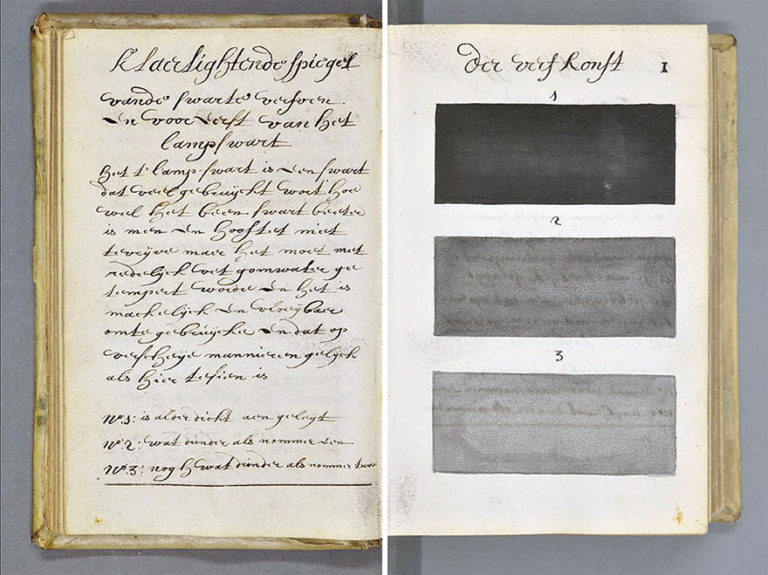 Klaerlightende Spiegel
vande swarte verfven
En voor Eerst van het
lampswart
het t'lamp swart is Een swart
dat veel gebruijckt wort hoe
wel het been swart beeter
is men En hooftet niet
te vrijve maer het moet met
redelijck vet gomwater ge
tempert worde En het is
mackelijck En vloeijbaer
omte gebruijcke En dat op
verscheije mannieren gelijck
als hier te sien is
No. 1: is alder dicht aen geleijt
No. 2: wat dunder als nommer Een
No. 3: nog wat dunder als nommer twee
der verfkonst 1
1
2
3